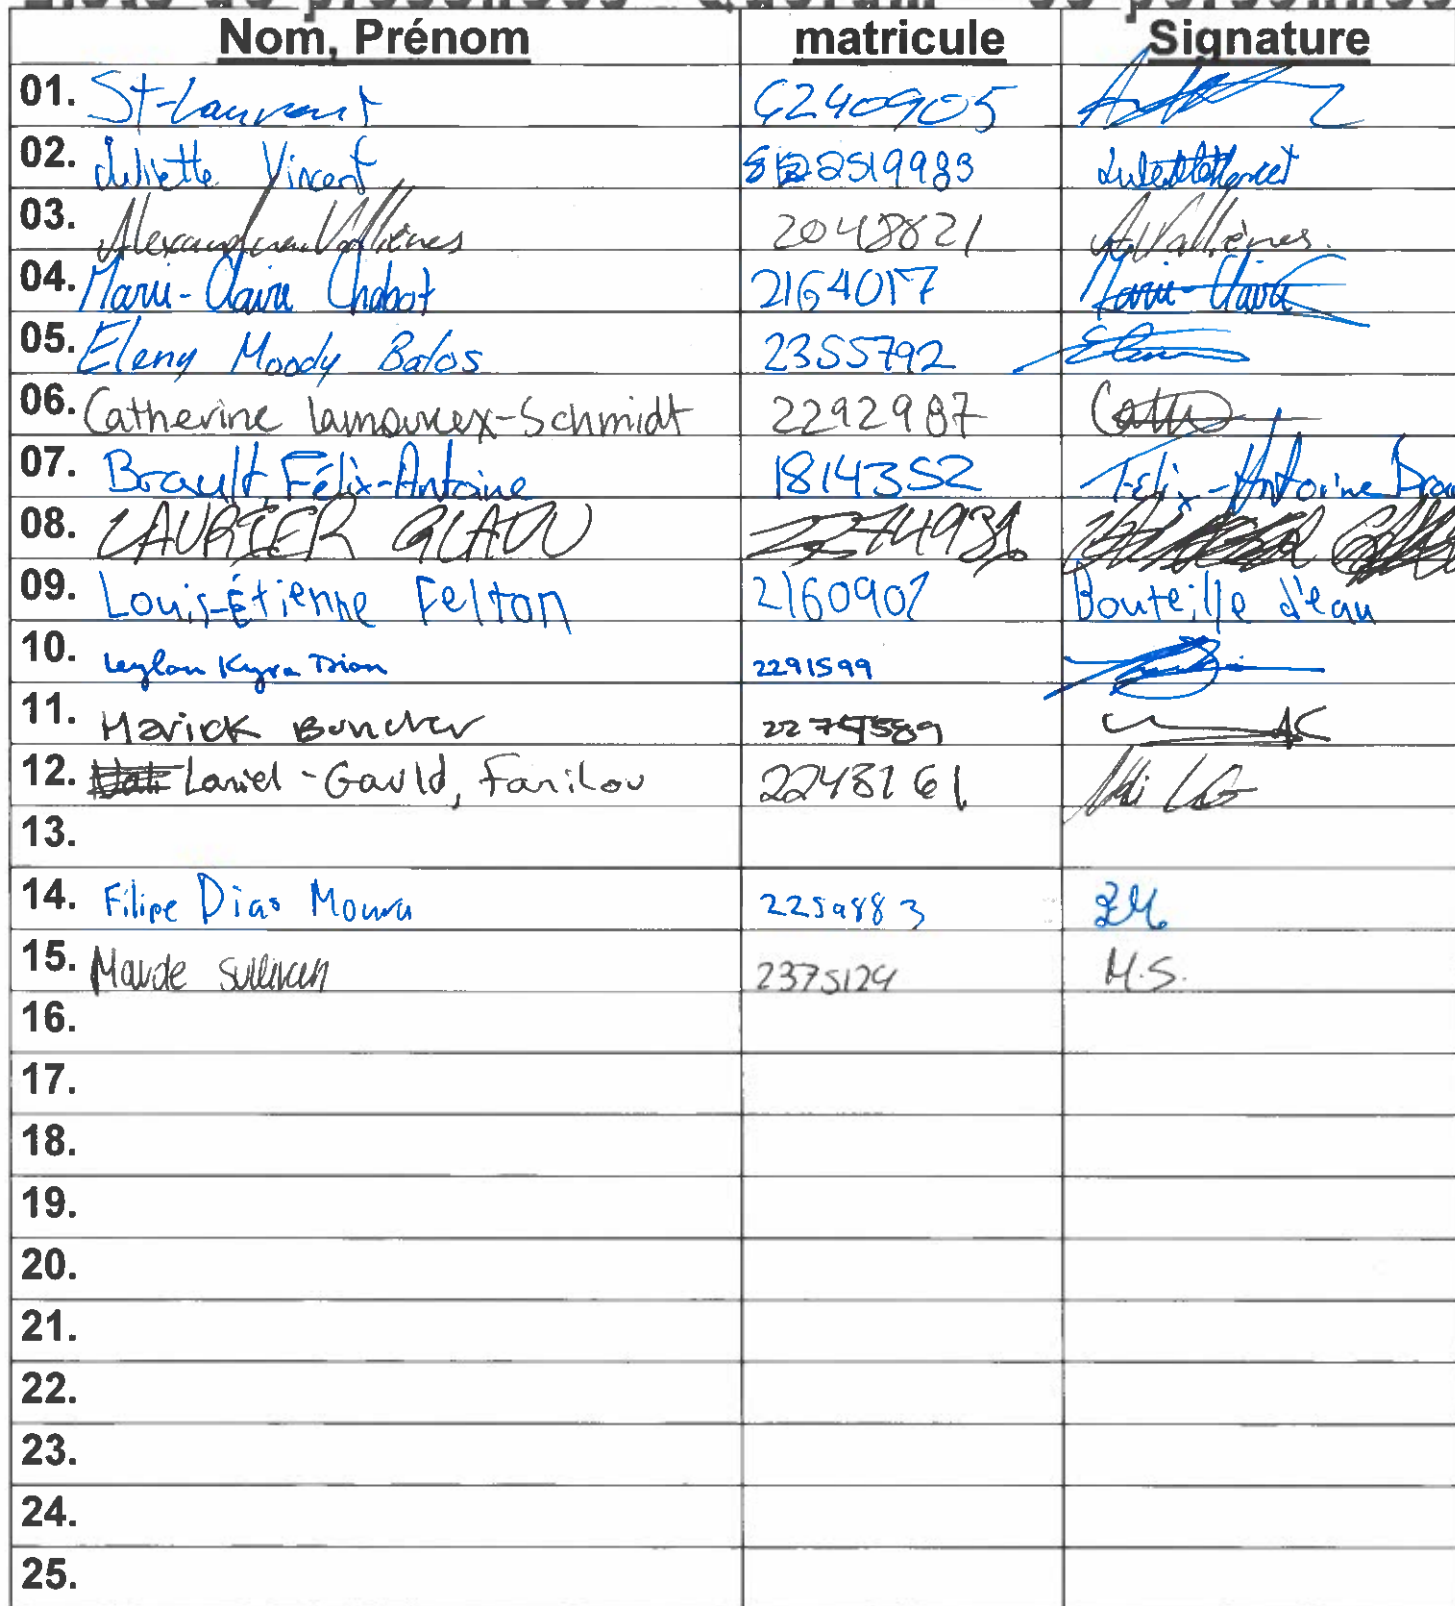 Nom, Prénom matricule Signature
01. St-Laurent 6240905
02. Juliette Vincent 2519983
03. Alexandra Vallières 2048821 A Vallières.
04. Marie-Claire Chabot 2164017 Marie-Claire
05. Eleny Moody Balos 2355792
06. Catherine lamoureux-Schmidt 2292987
07. Brault, Félix-Antoine 1814352 Félix-Antoine
08. LAURIER
09. Louis-Étienne Felton 2160901 Bouteille d'eau
10. Kyra Dion 2291599
11. Marick
12. Laniel-Gauld, Fanilou
13.
14. Filipe Dias Moura 2259883
15. Maude Sullivan 2375124 M.S.
16.
17.
18.
19.
20.
21.
22.
23.
24.
25.